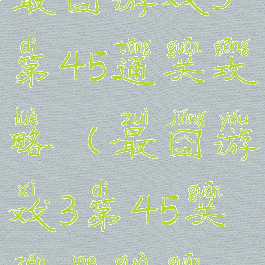 dì tōng guān gōng
第45通关攻
lüè zuì jiǒng yóu
略（最囧游
xì dì guān
戏3第45关
zěn me guò guān